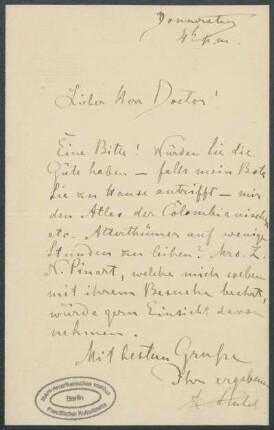 Donnerstag
4h p.m.
Lieber Herr Doctor!
Eine Bitte! Würden Sie die
Güte haben – falls mein Bote
Sie zu Hause antrifft – mir
den Atlas der Colombianischen
etc. Alterthümer auf wenige
Stunden zu leihen? Mrs. Z.
N. Pinart, welche mich soeben
mit ihrem Besuche beehrt,
würde gern Einsicht davon
nehmen.
Mit bestem Gruße
Ihr ergebener
Ibero-Amerikanisches Institut
Berlin
Preußischer Kulturbesitz